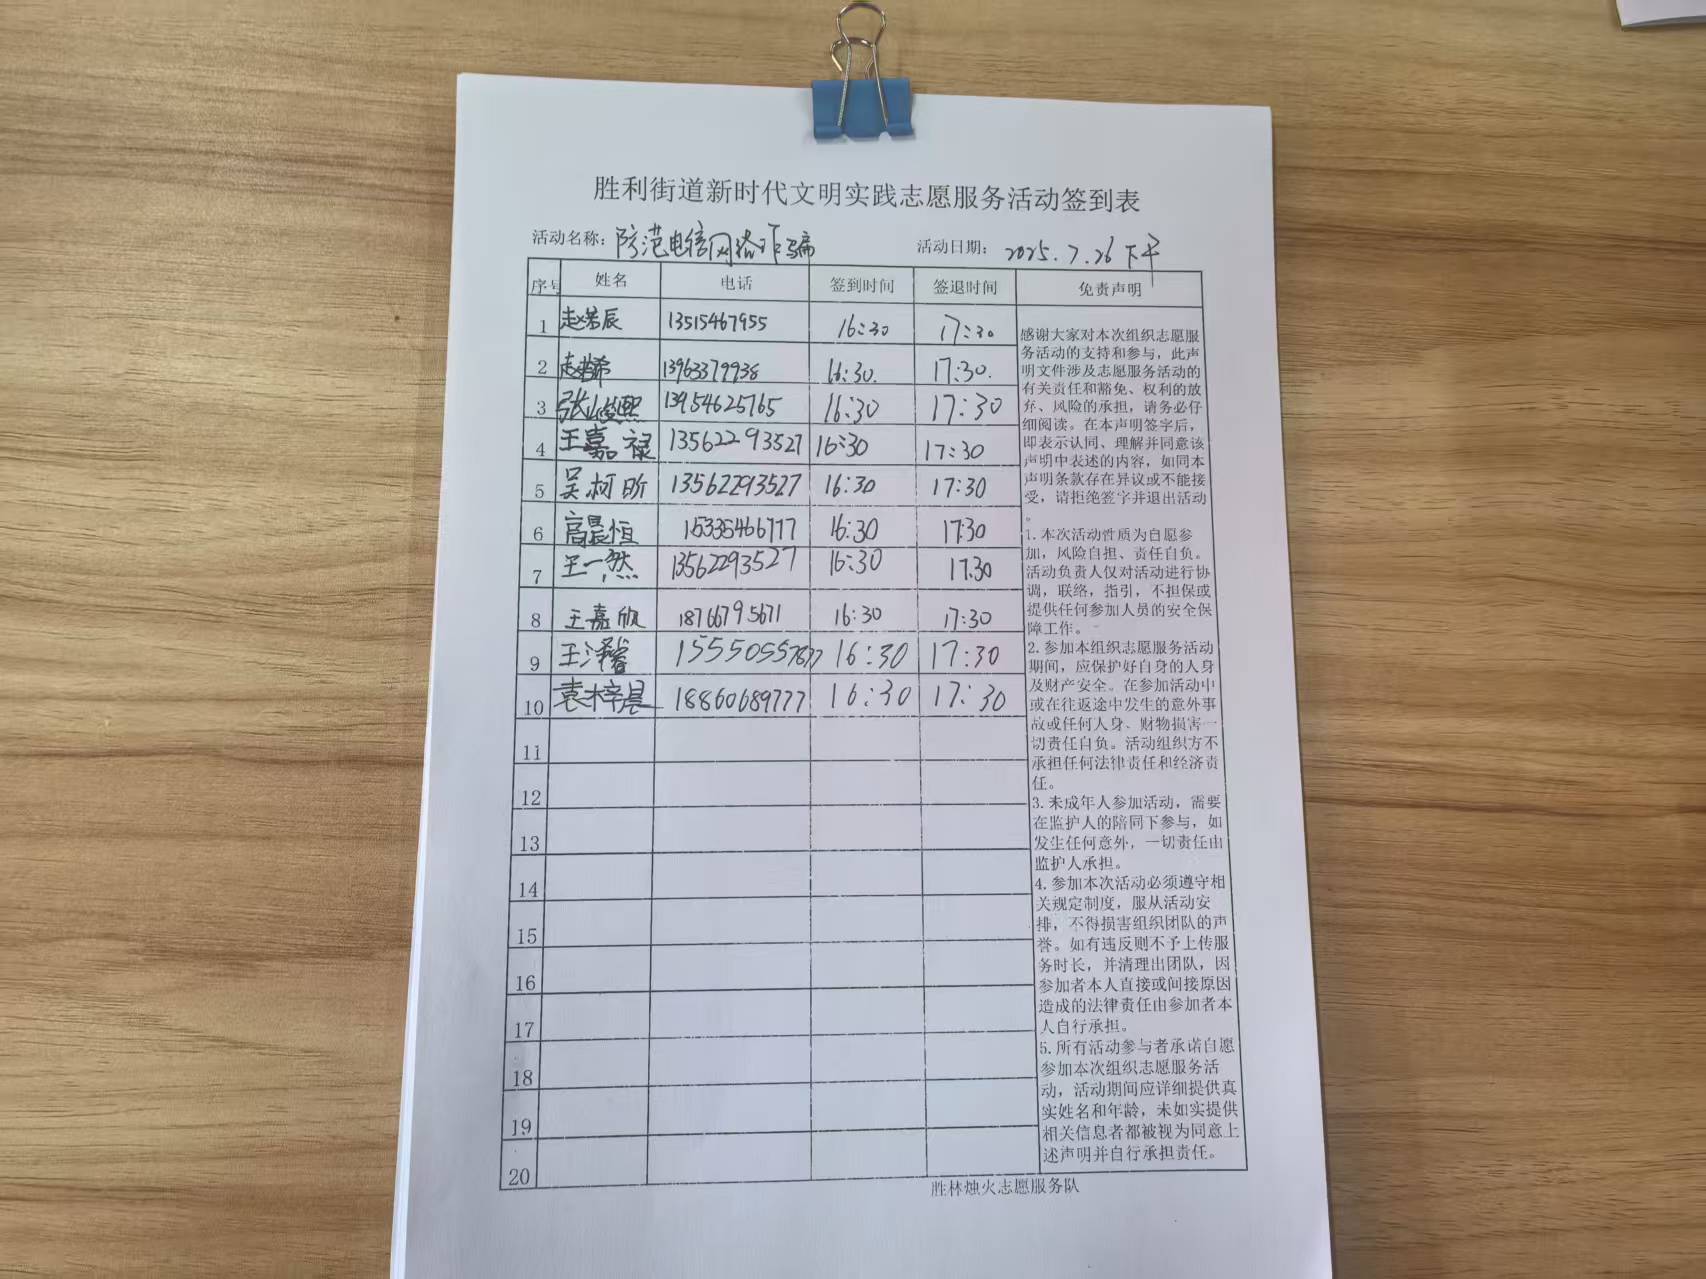 胜利街道新时代文明实践志愿服务活动签到表
活动名称：防范电信网络诈骗 活动日期：2025.7.26 下午
序号 姓名 电话 签到时间 签退时间 免责声明
1 赵若辰 13515467955 16:30 17:30
2 赵 13963379938 16:30. 17:30.
3 张峻熙 13954625765 16:30 17:30
4 王嘉禄 13562293527 16:30 17:30
5 吴柯昕 13562293527 16:30 17:30
6 高晨恒 15335466777 16:30 17:30
7 王一然 13562293527 16:30 17:30
8 王嘉欣 18766795671 16:30 17:30
9 王泽睿 16:30 17:30
10 袁梓晨 18860689777 16:30 17:30
11
12
13
14
15
16
17
18
19
20
感谢大家对本次组织志愿服
务活动的支持和参与，此声
明文件涉及志愿服务活动的
有关责任和豁免、权利的放
弃、风险的承担，请务必仔
细阅读。在本声明签字后，
即表示认同、理解并同意该
声明中表述的内容，如同本
声明条款存在异议或不能接
受，请拒绝签字并退出活动
。
1.本次活动性质为自愿参
加，风险自担、责任自负。
活动负责人仅对活动进行协
调，联络，指引，不担保或
提供任何参加人员的安全保
障工作。
2.参加本组织志愿服务活动
期间，应保护好自身的人身
及财产安全。在参加活动中
或在往返途中发生的意外事
故或任何人身、财物损害一
切责任自负。活动组织方不
承担任何法律责任和经济责
任。
3.未成年人参加活动，需要
在监护人的陪同下参与，如
发生任何意外，一切责任由
监护人承担。
4.参加本次活动必须遵守相
关规定制度，服从活动安
排，不得损害组织团队的声
誉。如有违反则不予上传服
务时长，并清理出团队，因
参加者本人直接或间接原因
造成的法律责任由参加者本
人自行承担。
5.所有活动参与者承诺自愿
参加本次组织志愿服务活
动，活动期间应详细提供真
实姓名和年龄，未如实提供
相关信息者都被视为同意上
述声明并自行承担责任。
胜林烛火志愿服务队